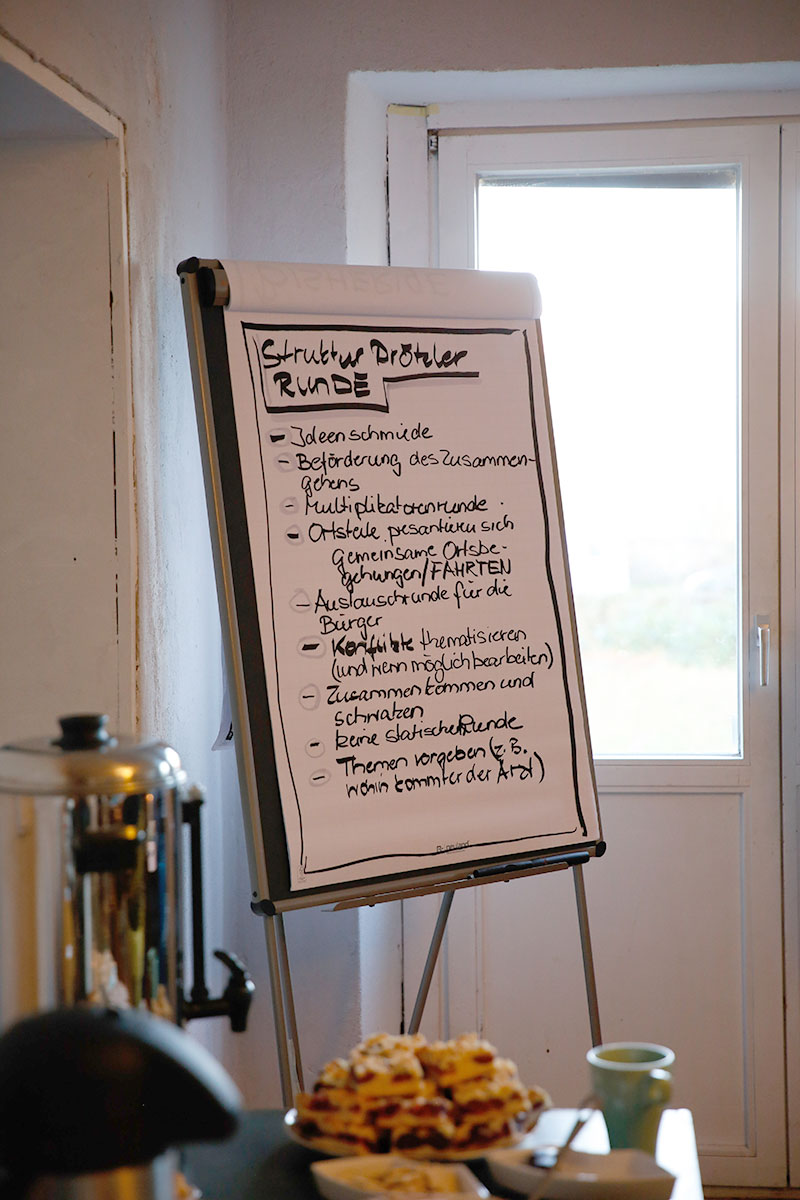 Struktur Drötzler
RUNDE
- Ideenschmiede
- Beförderung des Zusammen-
gehens
- Multiplikatorenrunde
- Ortsteile presäntieren sich
gemeinsame Ortsbe-
gehungen/FAHRTEN
- Austauschrunde für die
Bürger
- Konflikte thematisieren
(und wenn möglich bearbeiten)
- Zusammenkommen und
schwatzen
- keine statische Runde
- Themen vorgeben (z.B.
wohin kommt der Arzt)